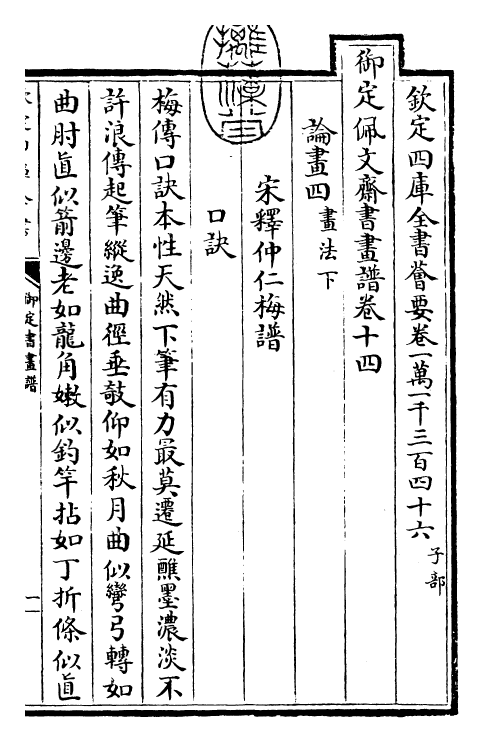 欽定四庫全書薈要卷一萬一千三百四十六 子部
御定佩文齋書畫譜卷十四
論畫四 畫法下
宋釋仲仁梅譜
口訣
梅傳口訣本性天然下筆有力最莫遷延蘸墨濃淡不
許浪傳起筆縱逸曲徑垂敧仰如秋月曲似彎弓轉如
曲肘直似箭邊老如龍角嫩似釣竿拈如丁折條似直
御定書畫譜
一